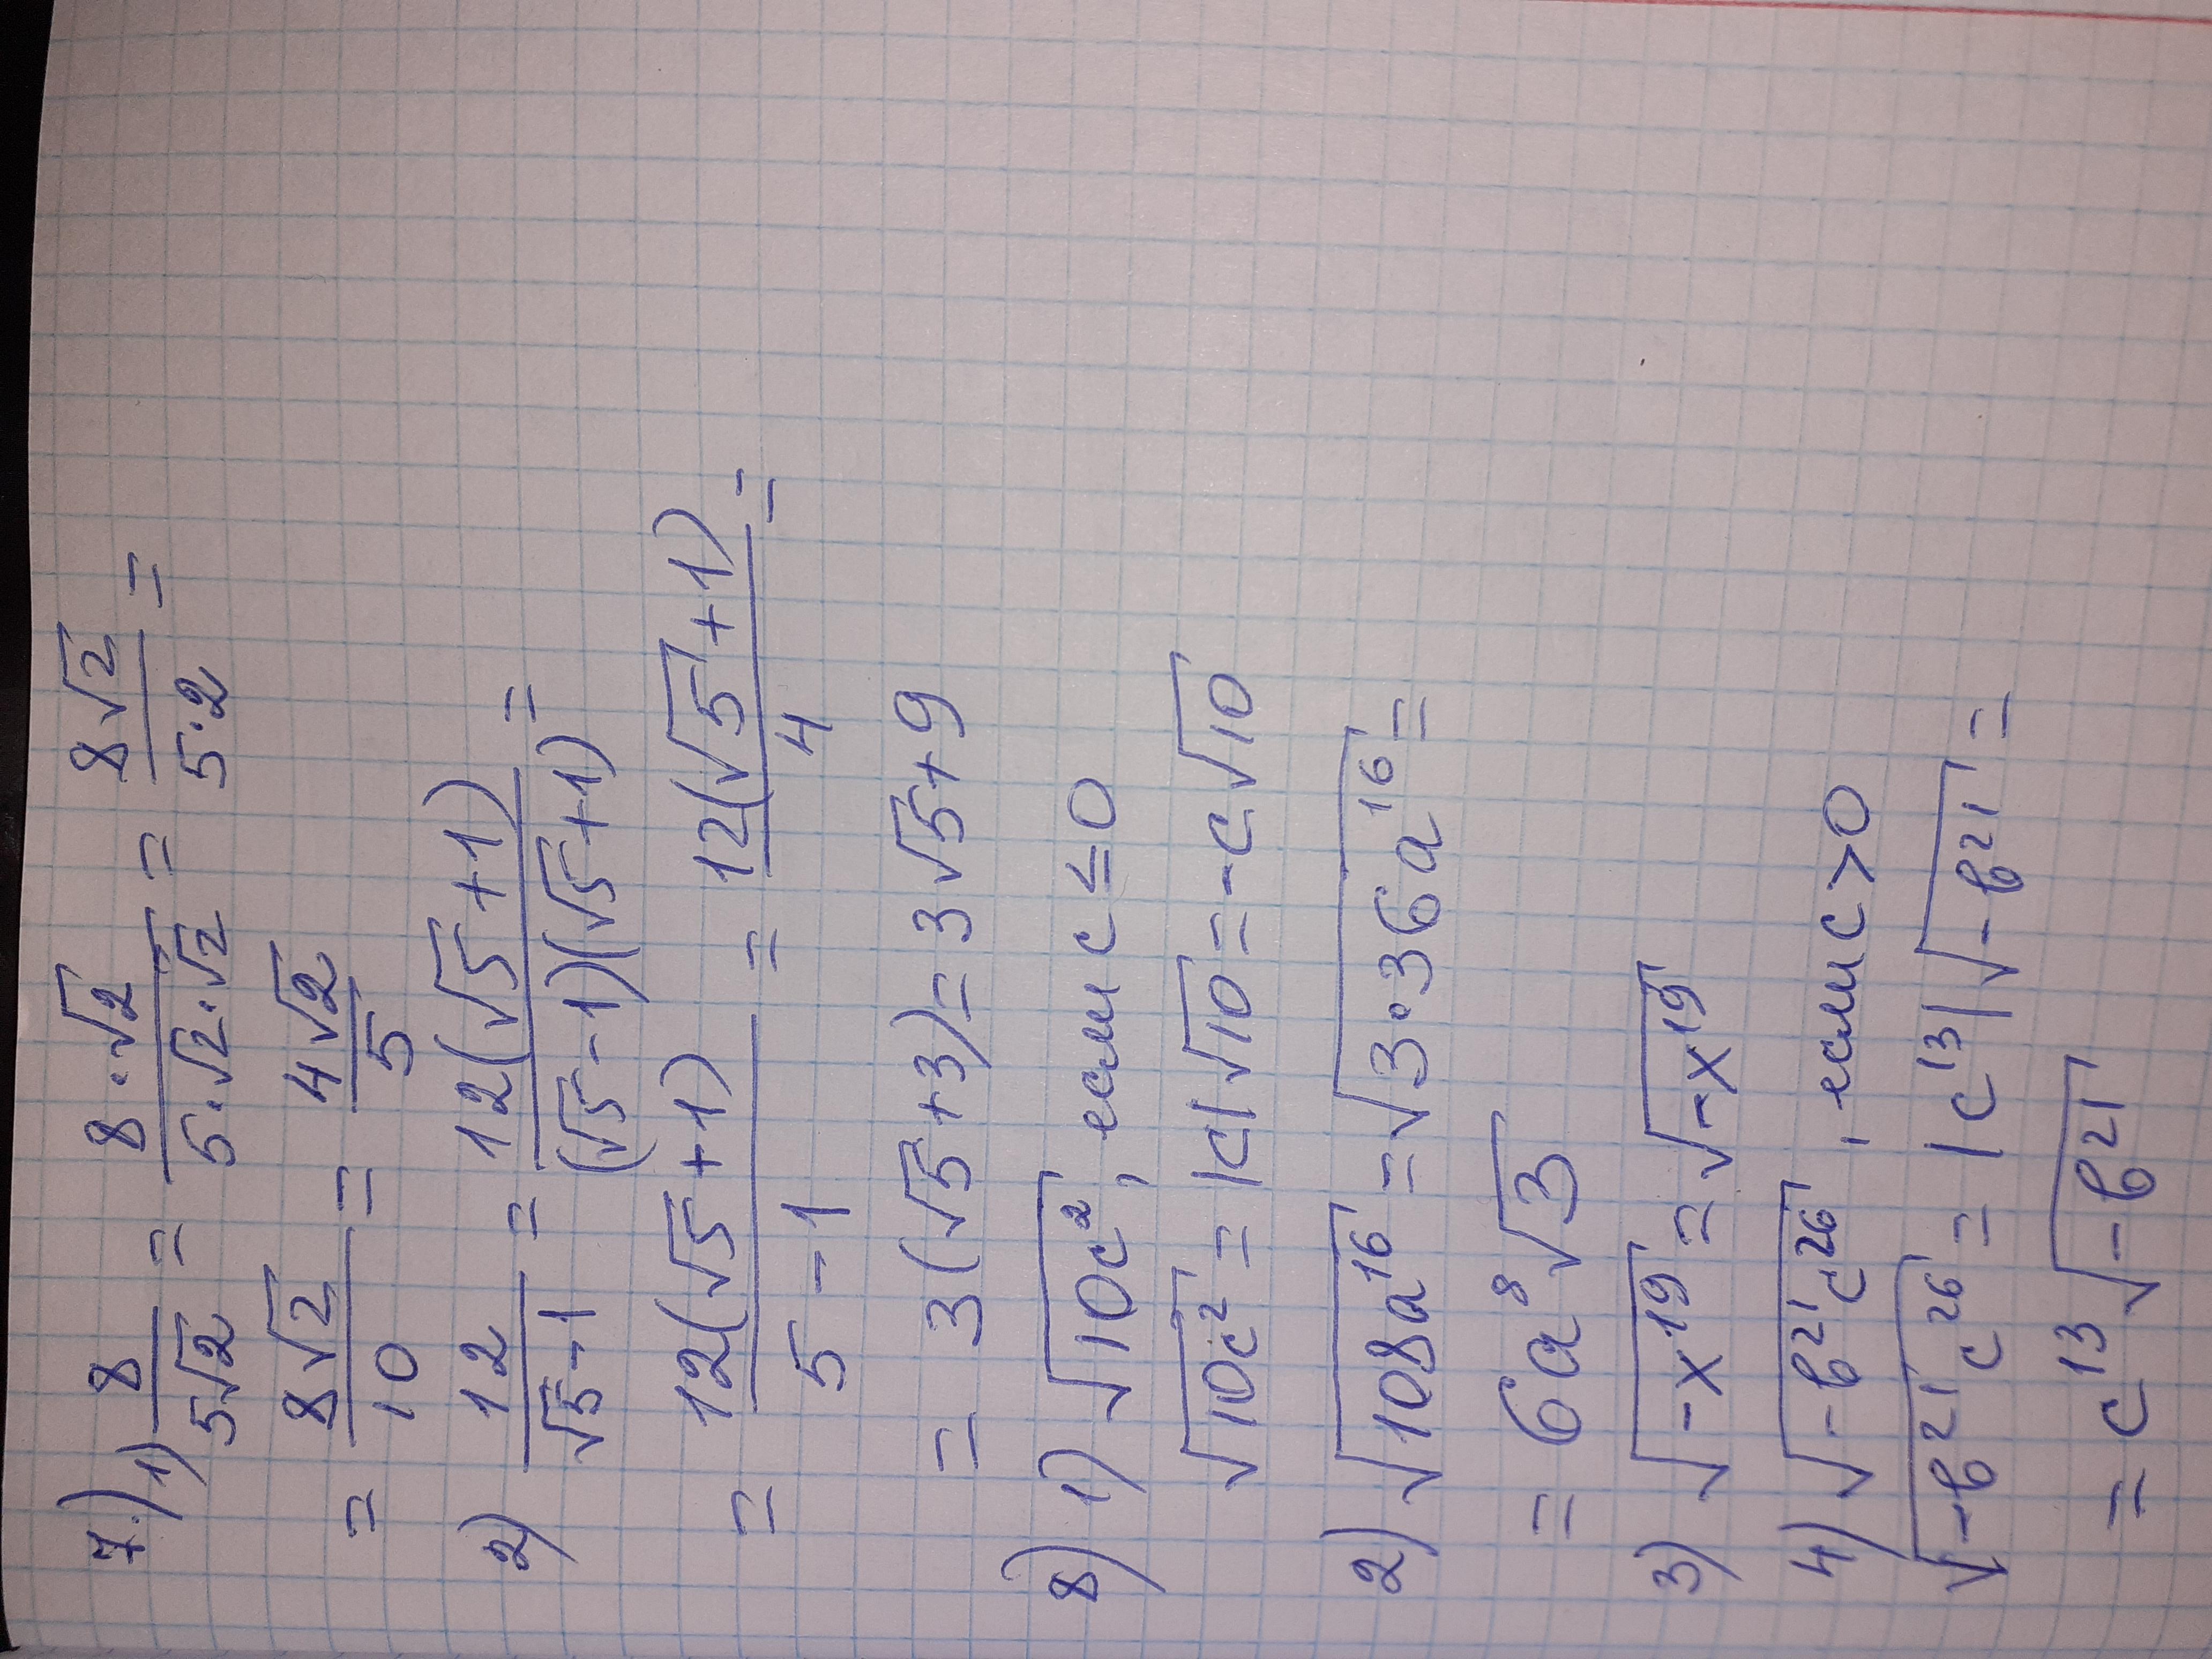 7.) 1) 8/(5√2) = (8·√2)/(5·√2·√2) = (8√2)/(5·2) =
= (8√2)/10 = (4√2)/5
2) 12/(√5-1) = (12(√5+1))/((√5-1)(√5+1)) =
= (12(√5+1))/(5-1) = (12(√5+1))/4 =
= 3(√5+3) = 3√5+9
8) 1) √(10c²), если c ≤ 0
√(10c²) = |c|√10 = -c√10
2) √(108a¹⁶) = √(3·36a¹⁶) =
= 6a⁸√3
3) √(-x¹⁹) = √(-x¹⁹)
4) √(-b²¹c²⁶), если c>0
√(-b²¹c²⁶) = |c¹³|√(-b²¹) =
= c¹³√(-b²¹)